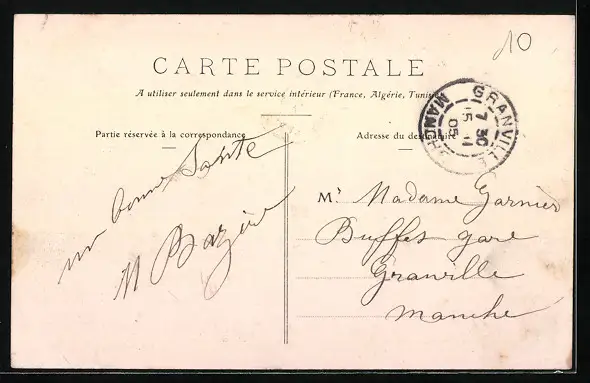 10
CARTE POSTALE
A utiliser seulement dans le service intérieur (France, Algérie, Tunisie
Partie réservée à la correspondance
Adresse du destinataire
GRANVILLE
7 30
5 - 11
05
MANCHE
bonne Sante
M Bazire
Mr Madame Garnier
Buffet gare
Granville
Manche